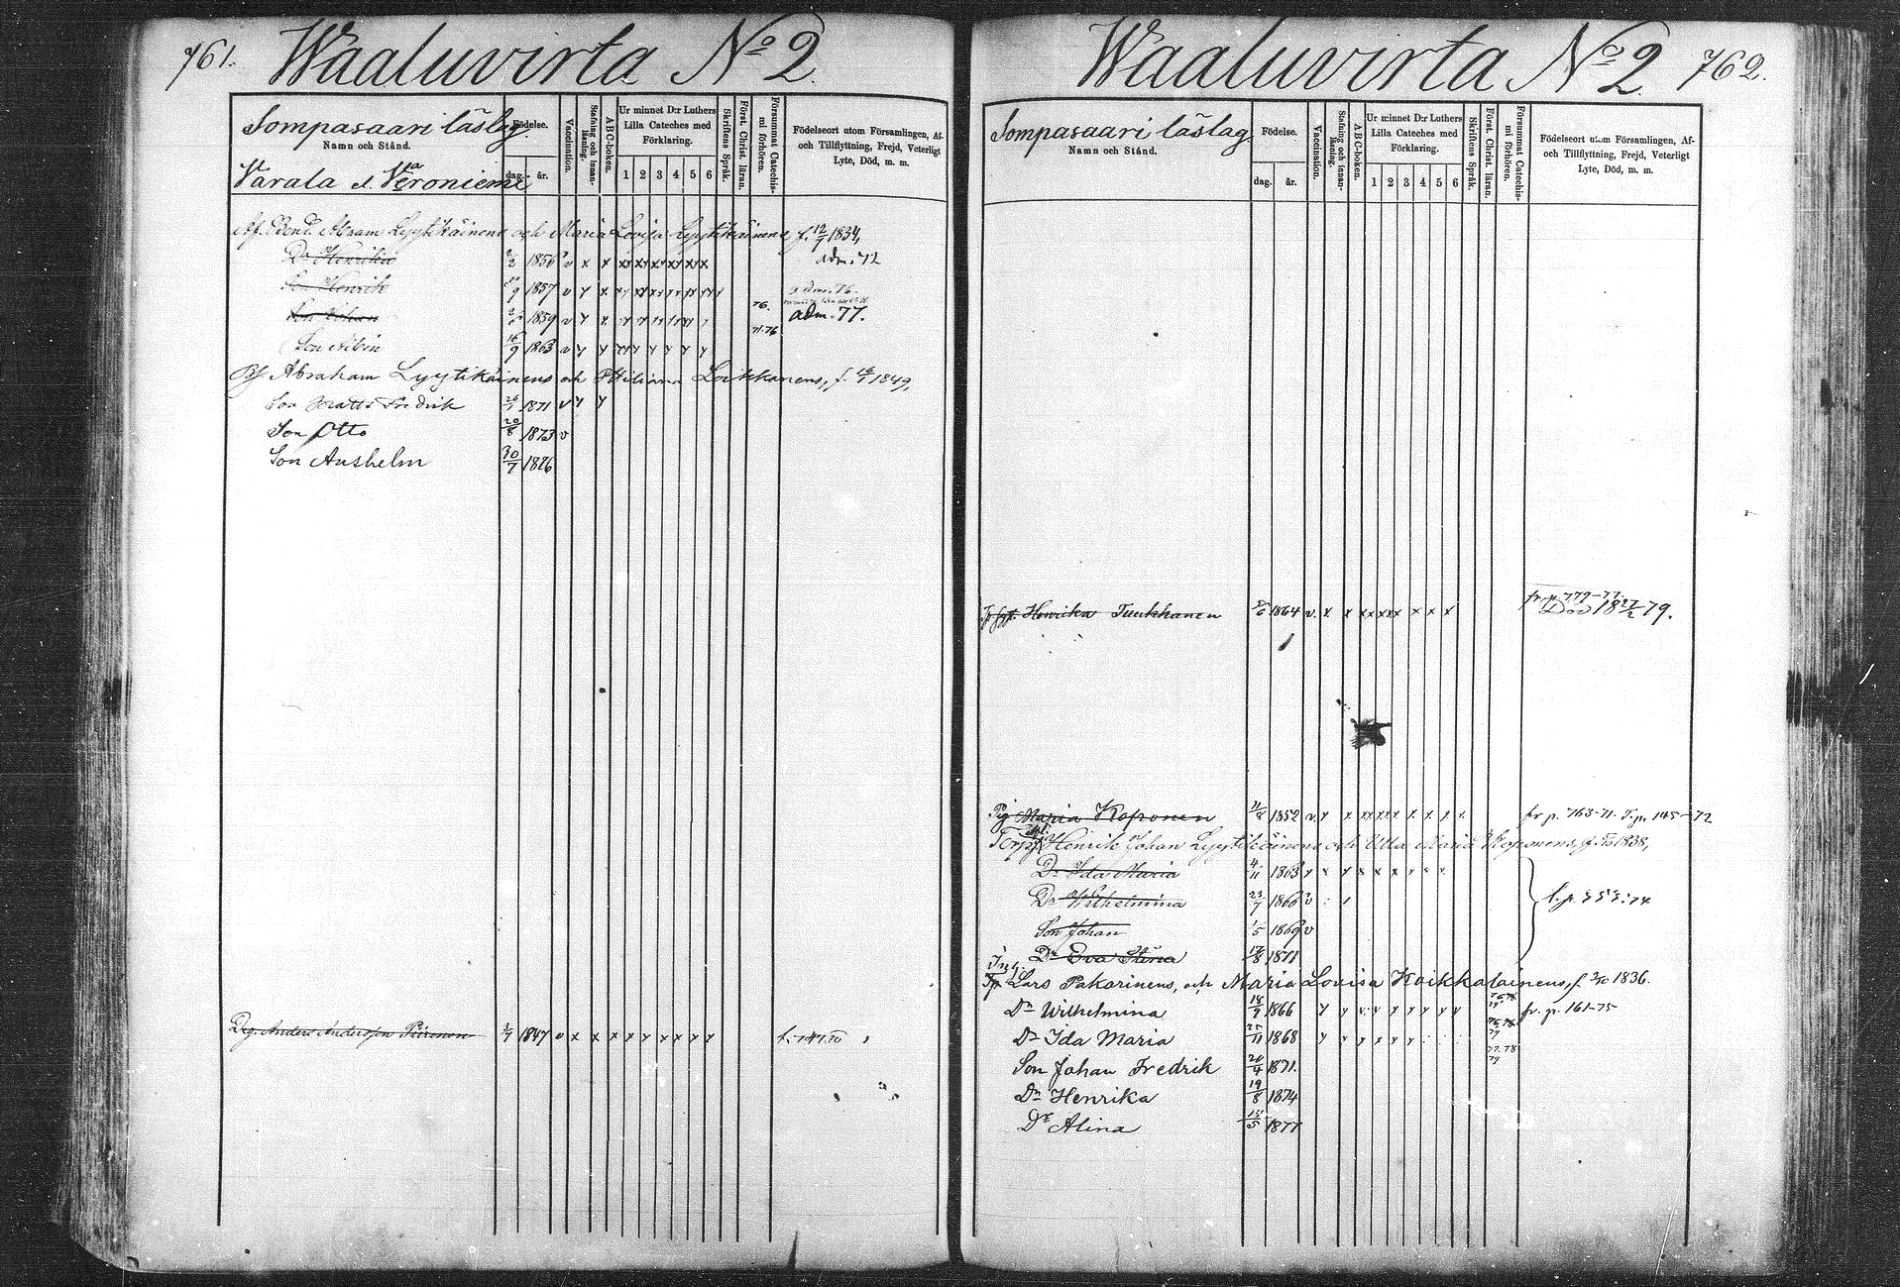 761. Waaluvirta No 2.
Sompasaari läslag.
Namn och Stånd.
Födelse.
dag. år.
Vaccination.
Stafning och innan-läsning.
ABC-boken.
Ur minnet D:r Luthers
Lilla Cateches med
Förklaring.
1 2 3 4 5 6
Skriftens Språk.
Först. Christ. läran.
Försummat Catechis-
mi förhören.
Födelseort utom Församlingen, Af-
och Tillflyttning, Frejd, Veterligt
Lyte, Död, m. m.
Varala
Abram Lyytikäinens och Maria Lovisa Lyytikäinens f. 12/9 1834,
Dr Henrika 1856 v adm. 72
Son Henrik 1857 v adm. 76.
Son Johan 1859 v 76. adm. 77.
Son Albin 16/9 1863 v 71.76
Abraham Lyytikäinens och Loikkanens, f. 1849,
Son Matts Fredrik 1871 v
Son Otto 20/8 1873 v
Son Anshelm 30/7 1876
Drg. Anders Andersson Piironen 1847 v
Waaluvirta No 2. 762.
Sompasaari läslag.
Namn och Stånd.
Födelse.
dag. år.
Vaccination.
Stafning och innan-läsning.
ABC-boken.
Ur minnet D:r Luthers
Lilla Cateches med
Förklaring.
1 2 3 4 5 6
Skriftens Språk.
Först. Christ. läran.
Försummat Catechis-
mi förhören.
Födelseort utom Församlingen, Af-
och Tillflyttning, Frejd, Veterligt
Lyte, Död, m. m.
fr. p. 779-77.
Henrika Tuukkanen 1864 v. Död 18 27/2 79.
Pig. Maria Koponen 11/8 1852 v fr p. 763-71. T. p. 145-72
Henrik Johan Lyytikäinens och Ulla Maria Koponens, f. 1838,
Dr Ida Maria 4/11 1863
Dr Wilhelmina 23/7 1866 v
Son Johan 1/5 1869 v
Dr Eva Stina 17/8 1871
Inh.
Lars Pakarinens, och Maria Lovisa Koikkalainens, f. 2/10 1836.
Dr Wilhelmina 18/9 1866 fr. p. 161-75
Dr Ida Maria 25/11 1868
Son Johan Fredrik 20/4 1871. 77.78 79
Dr Henrika 19/8 1874
Dr Alina 15/5 1877